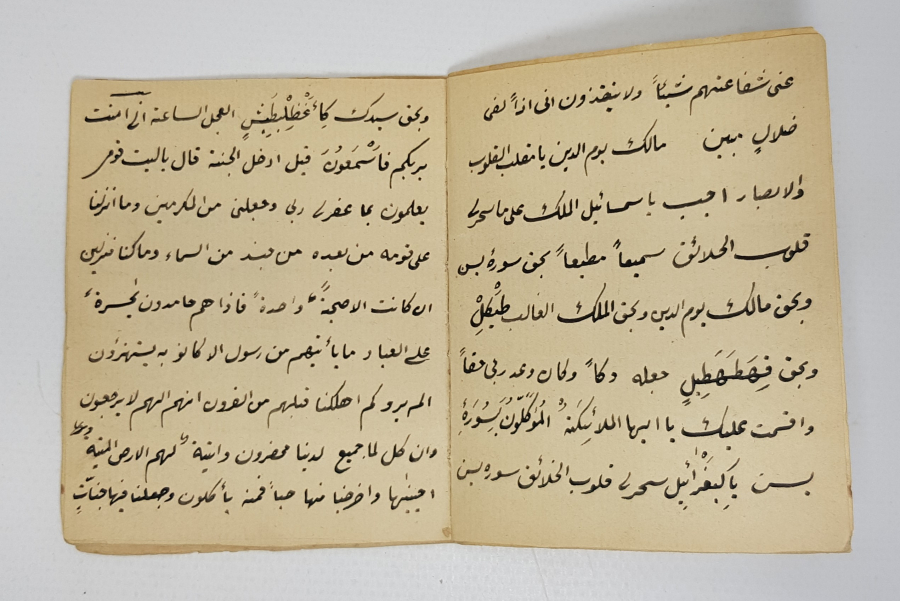 عنى شفاعتهم شيئاً ولا ينقذون انى اذاً لفى
ضلالٍ مبين مالك يوم الدين يا مقلب القلوب
والابصار اجب يا سمائيل الملك على ما سخرلى
قلوب الخلائق سميعاً مطيعاً بحق سورة يس
وبحق مالك يوم الدين وبحق الملك الغالب طَيْكَلْ
وبحق جعله دكاً وكان وعد ربى حقاً
واقسمت عليك يا ايها الملائِكَة الْمُوَكَّلُونَ بِسُورَةِ
يس سخرلى قلوب الخلائق سورة يس
وبحق سيدك العجل الساعة انى امنت
بربكم فاَسْمَعُونَ قيل ادخل الجنة قال ياليت قومى
يعلمون بما غفرلى ربى وجعلنى من المكرمين وما انزلنا
على قومه من بعده من جند من السماء وماكنا منزلين
ان كانت الا صيحةً واحدةً فاذا هم خامدون يا حسرةً
على العباد ما يأتيهم من رسول الا كانوا به يستهزؤن
الم يروكم اهلكنا قبلهم من القرون انهم اليهم لا يرجعون
وان كل لما جميع لدينا محضرون واية لهم الارض الميتة
احييناها واخرجنا منها حباً فمنه يأكلون وجعلنا فيها جناتٍ